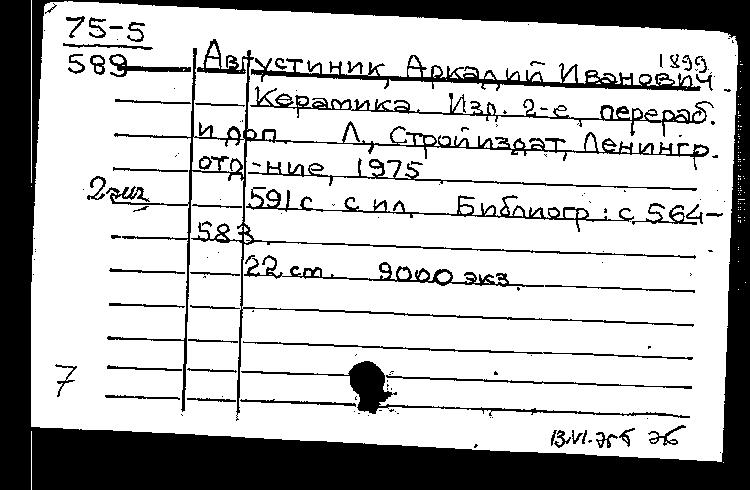 75-5
589
1899
Августиник, Аркадий Иванович
Керамика. Изд. 2-е, перераб.
и доп. Л., Стройиздат, Ленингр.
отд-ние, 1975
2 экз
591 с. с ил. Библиогр: с. 564-
583.
22 cm. 9000 экз.
7
13.VI.75